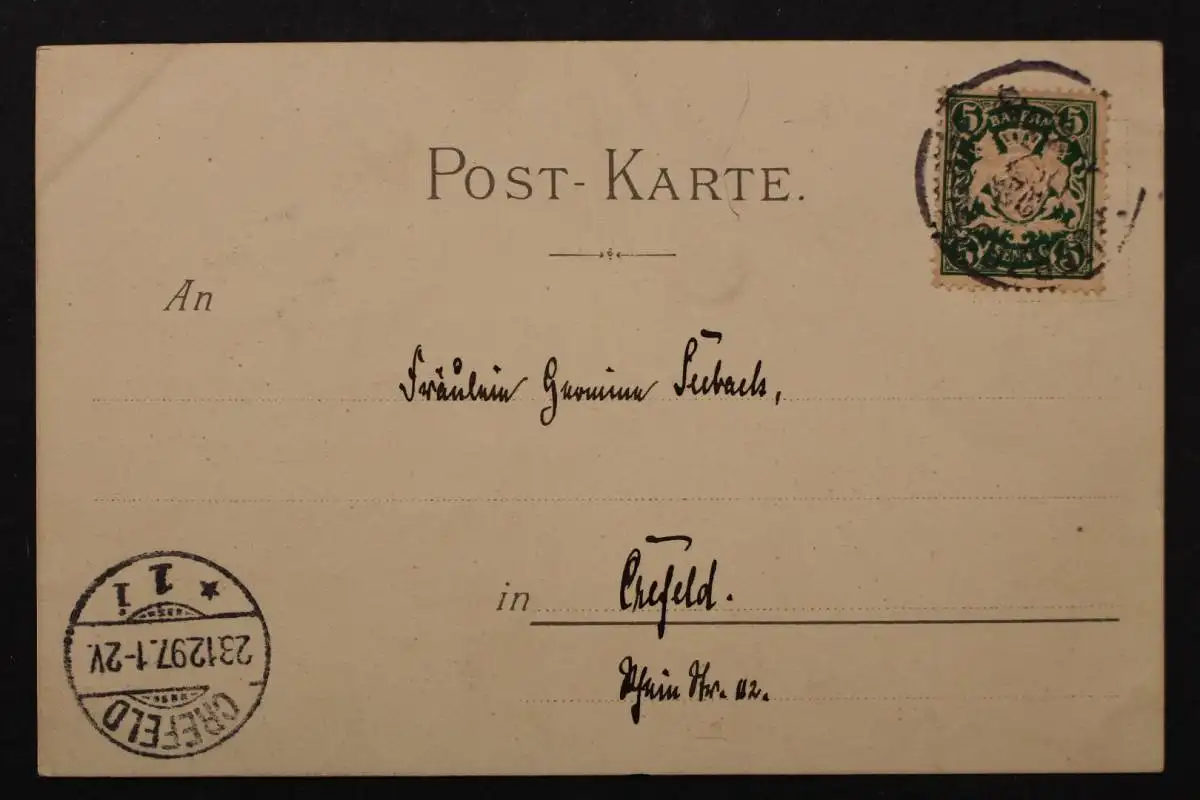 POST-KARTE.
BAYERN
5 5
5 5
An
Fräulein Germine Seebach,
in Crefeld.
Rhein Str. 112.
1 i
23 12 97. 1-2 V.
CREFELD